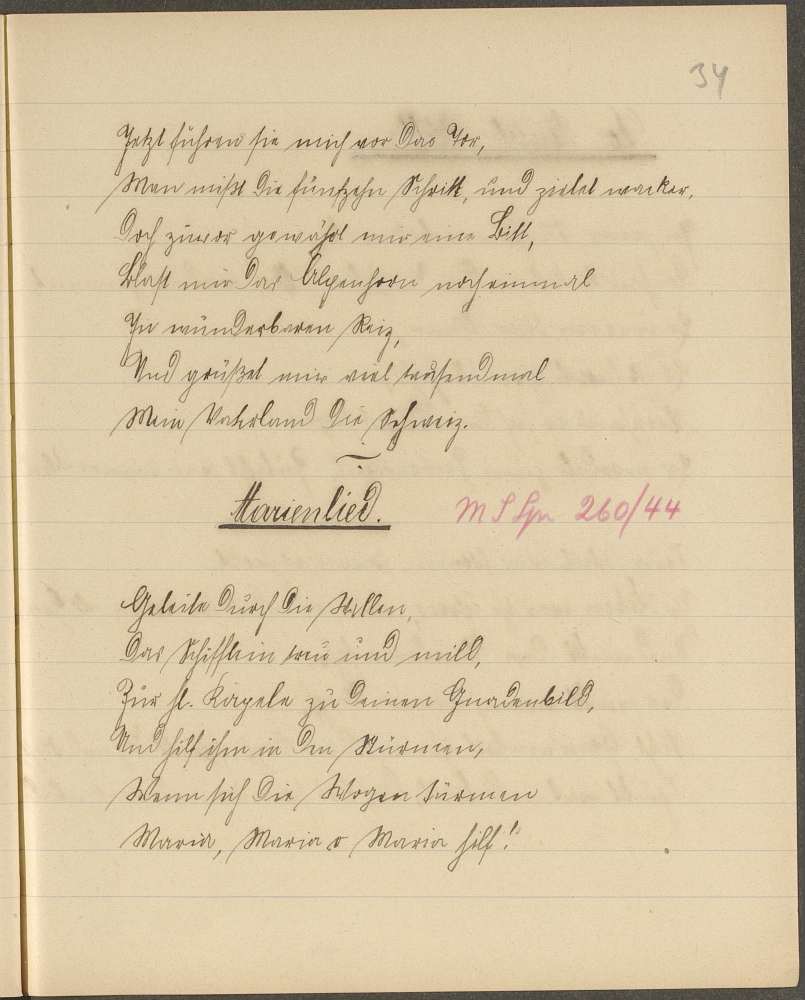 34
Jetzt führen sie mich vor das Tor,
Man mißt die fünfzehn Schritt, und zielet wacker,
Doch zuvor gewährt mir eine Bitt,
Blast mir das Alpenhorn noch einmal
In wunderbaren Reiz,
Und grüßet mir viel tausendmal
Mein Vaterland die Schweiz.
Marienlied. 260/44
Geleite durch die Wellen,
Das Schifflein treu und mild,
Zur hl. Kapele zu deinen Gnadenbild,
Und hilf ihm in den Stürmen,
Wenn sich die Wogen türmen
Maria, Maria o Maria hilf!